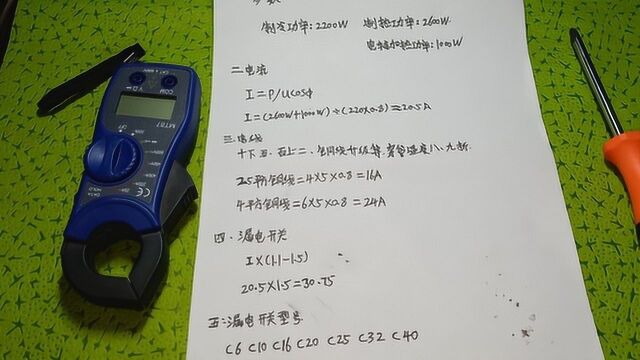 制冷功率:2200W 制热功率:2600W
电辅加热功率:1000W
二.电流
I=P/Ucosφ
I=(2600W+1000W)÷(220×0.8)=20.5A
三.电线
十下五.百上二.铜线升级算.穿管温度八.九折.
2.5平方铜线=4×5×0.8=16A
4平方铜线=6×5×0.8=24A
四.漏电开关
I×(1.1-1.5)
20.5×1.5=30.75
五:漏电开关型号
C6 C10 C16 C20 C25 C32 C40
COM
MT87
OFF
HOLD